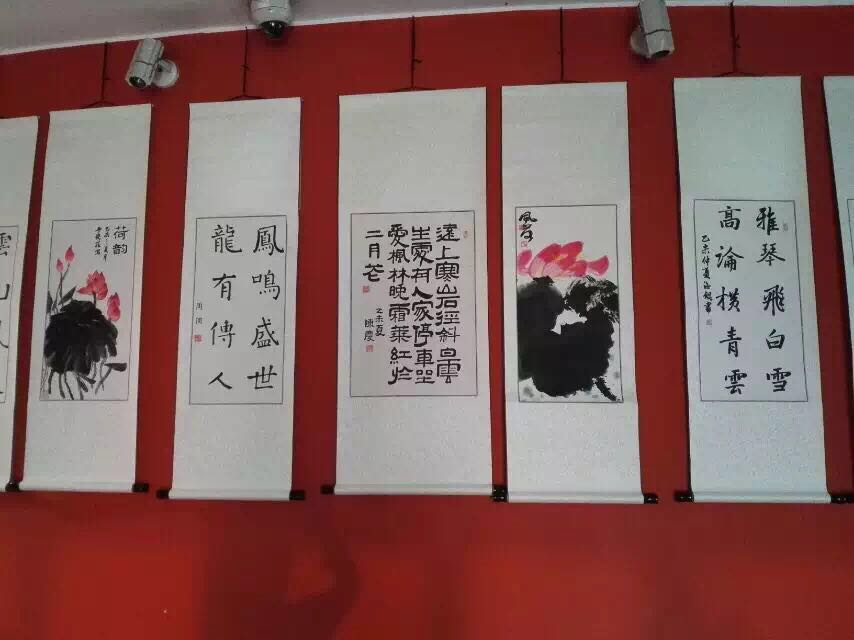 荷韵
鳳鳴盛世
龍有傳人
遠上寒岩徑斜白雲
生處有人家停車坐
愛楓林晚霜葉紅於
二月花
乙未夏
陳慶
雅琴飛白雪
高論橫青雲
乙未仲夏